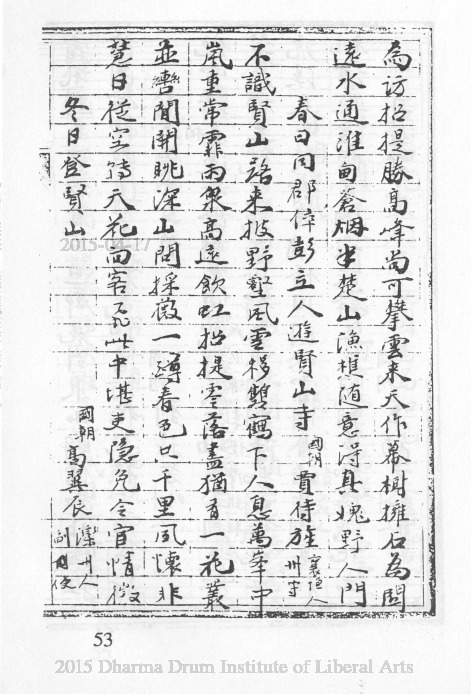 為訪招提勝高峰尚可攀雲来天作幕樹擁石為關
遠水通淮甸蒼烟半楚山漁樵随意得真媿野人門
春日同郡倅彭立人遊賢山寺 國朝 賈待旌 襄垣人 州守
不識賢山路来披野壑風雲移雙下人息萬峯中
嵐重常霏雨泉高遠飲虹招提零落盡猶有一花叢
並轡閒開眺深山問採薇一罇春色只千里風懷非
慧日從空待天花向客飛此中堪吏隐免令官情微
冬日登賢山
國朝 高翼辰 灤州人 副使
53
2015-04-17
2015 Dharma Drum Institute of Liberal Arts